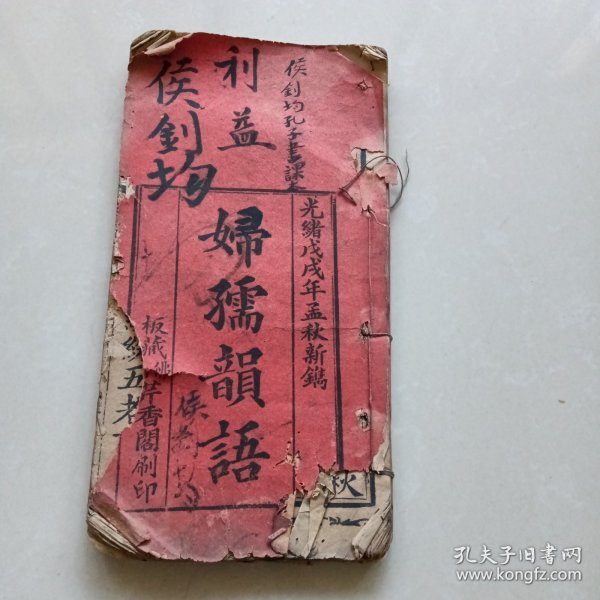 侯釗均孔子書課本
利益
侯釗均
光緒戊戌年孟秋新鐫
婦孺韻語
侯
板藏
芹香閣刷印
五
秋
孔夫子旧书网
www.kongfz.com